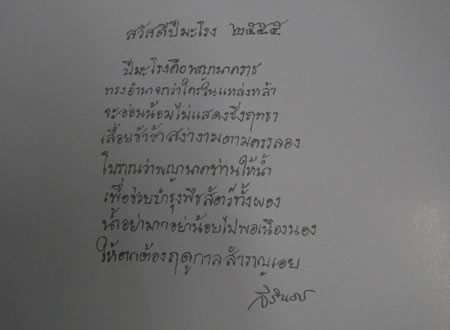 สวัสดีปีมะโรง ๒๕๕๕
ปีมะโรงคือพญานาคราช
ทรงอำนาจกว่าใครในแหล่งหล้า
จะอ่อนน้อมไม่แสดงซึ่งฤทธา
เลื้อยช้าช้าสง่างามตามครรลอง
โบราณว่าพญานาคท่านให้น้ำ
เพื่อช่วยบำรุงพืชสัตว์ทั้งผอง
น้ำอย่ามากอย่าน้อยไปพอเนืองนอง
ให้ตกต้องฤดูกาลสำราญเอย
สิรินธร